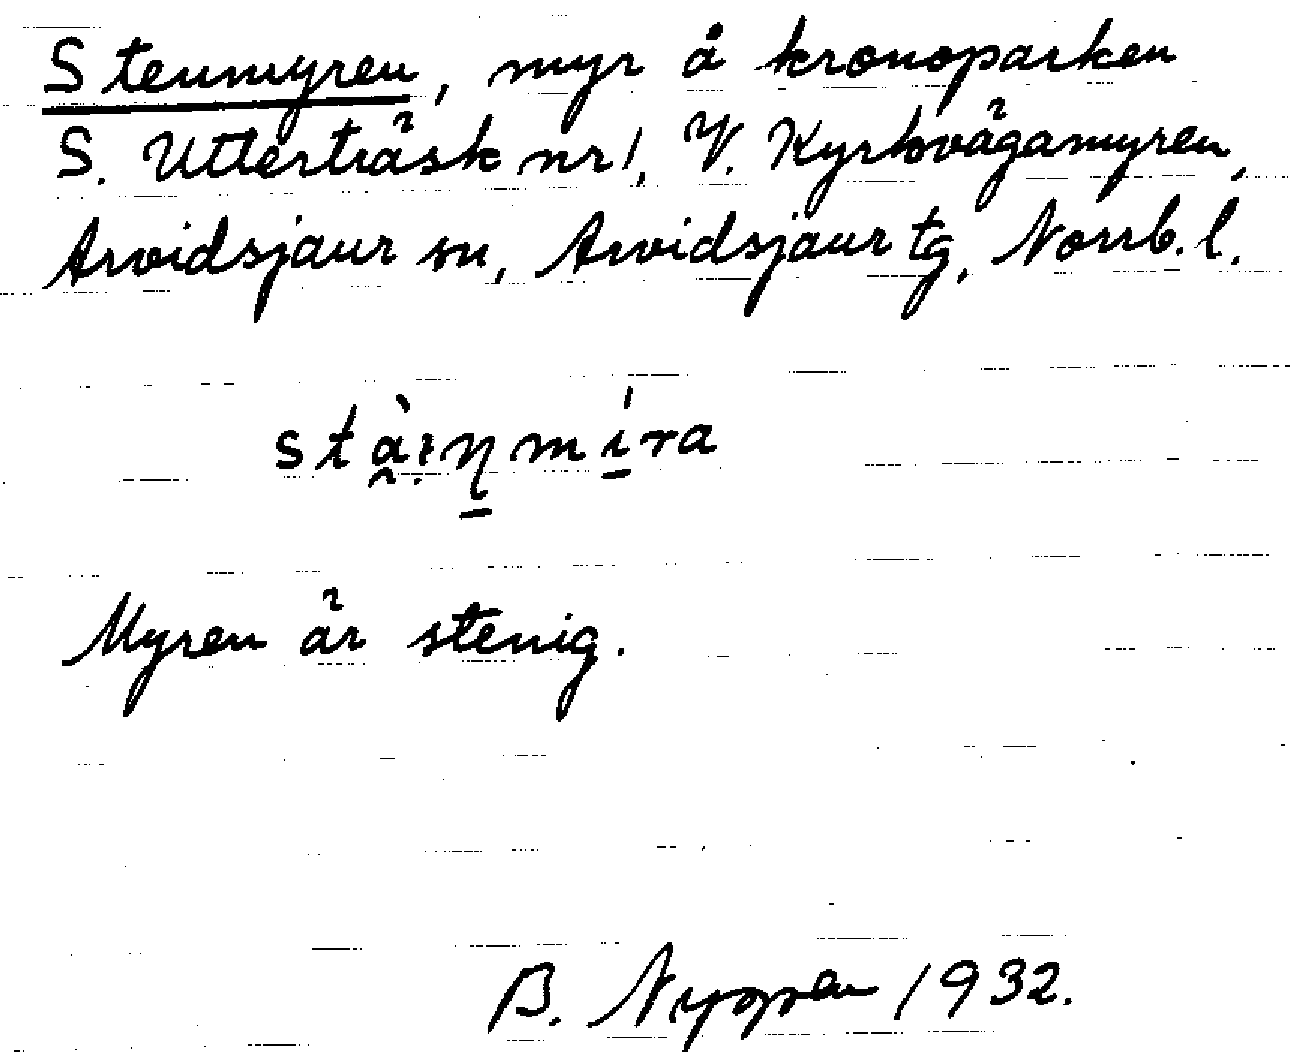 Stenmyren, myr å kronoparken
S. Utterträsk nr 1, V. Kyrkvägamyren,
Arvidsjaur sn, Arvidsjaur tg, Norrb. l.
stà̰ıṇmíra
Myren är stenig.
B. Nyman 1932.